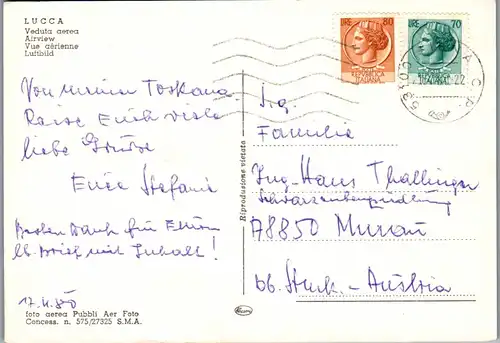 LUCCA
Veduta aerea
Airview
Vue aérienne
Luftbild
Von meiner Toskana-
Reise Euch viele
liebe Grüsse
Eure Stefanie
Besten Dank für Euren
lb. Brief mit Inhalt!
foto aerea Pubbli Aer Foto
Concess. n. 575/27325 S.M.A.
Riproduzione vietata
LIRE 80
LIRE 70
Familie
Ing. Hans Thallinger
Schwarzenbergsiedlung
A8850 Murau
Austria